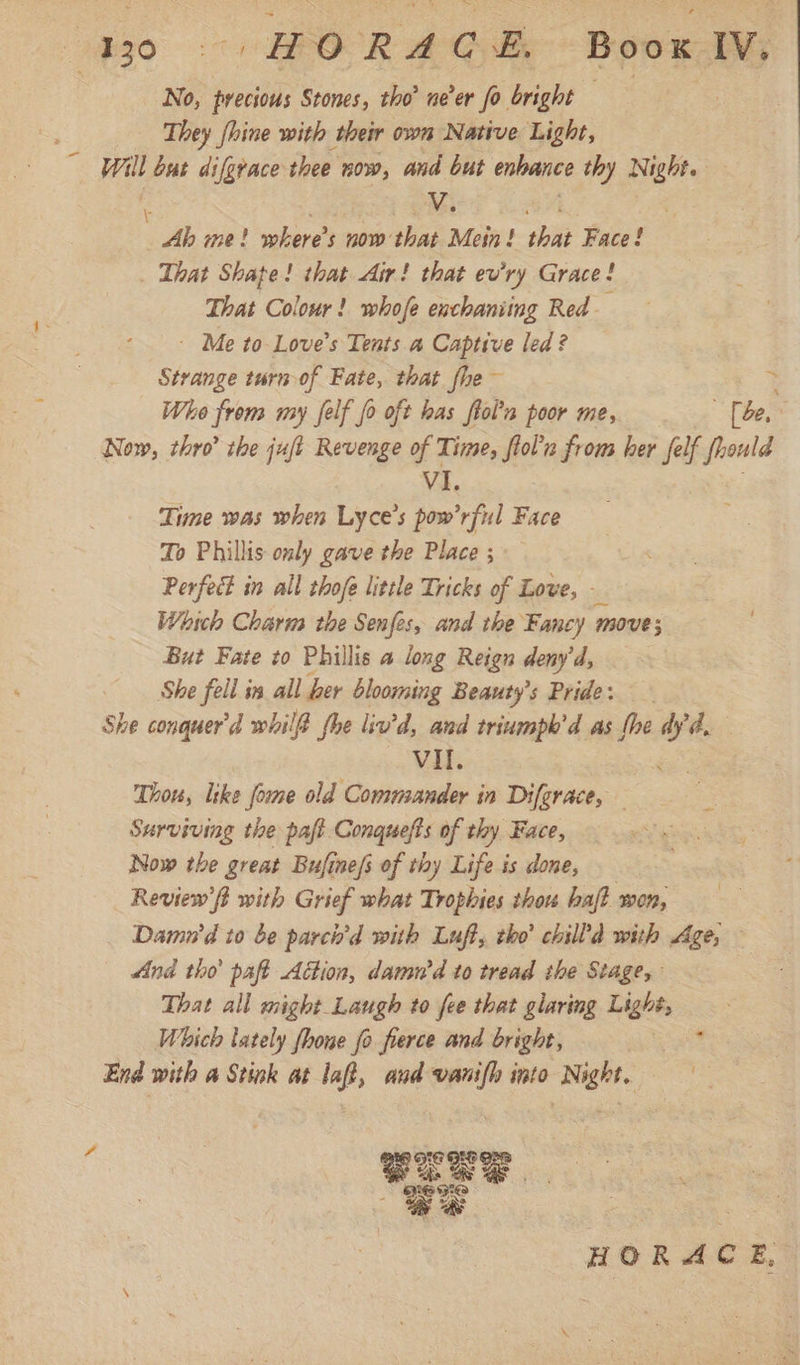 130 HORACE. Book IV.
No, precious Stones, tho' ne'er ſo bright
They ſhine with their own Native Light,
Will but diſgrace thee now, and but enhance thy Night.
V.
Ah me! where's now that Mein! that Face!
That Shape! that Air! that ev'ry Grace!
That Colour! whoſe enchanting Red
Me to Love's Tents a Captive led?
Strange turn of Fate, that ſhe
Who from my ſelf ſo oft has ſtol'n poor me, [be,
Now, thro' the juſt Revenge of Time, ſtol'n from her ſelf ſhould
VI.
Time was when Lyce's pow'rful Face
To Phillis only gave the Place;
Perfect in all thoſe little Tricks of Love,
Which Charm the Senſes, and the Fancy move;
But Fate to Phillis a long Reign deny'd,
She fell in all her blooming Beauty's Pride:
She conquer'd whilſt ſhe liv'd, and triumph'd as ſhe dy'd.
VII.
Thou, like ſome old Commander in Diſgrace,
Surviving the paſt Conqueſts of thy Face,
Now the great Buſineſs of thy Life is done,
Review'ſt with Grief what Trophies thou haſt won,
Damn'd to be parch'd with Luſt, tho' chill'd with Age,
And tho' paſt Action, damn'd to tread the Stage,
That all might Laugh to ſee that glaring Light,
Which lately ſhone ſo fierce and bright,
End with a Stink at laſt, and vaniſh into Night.
HORACE,